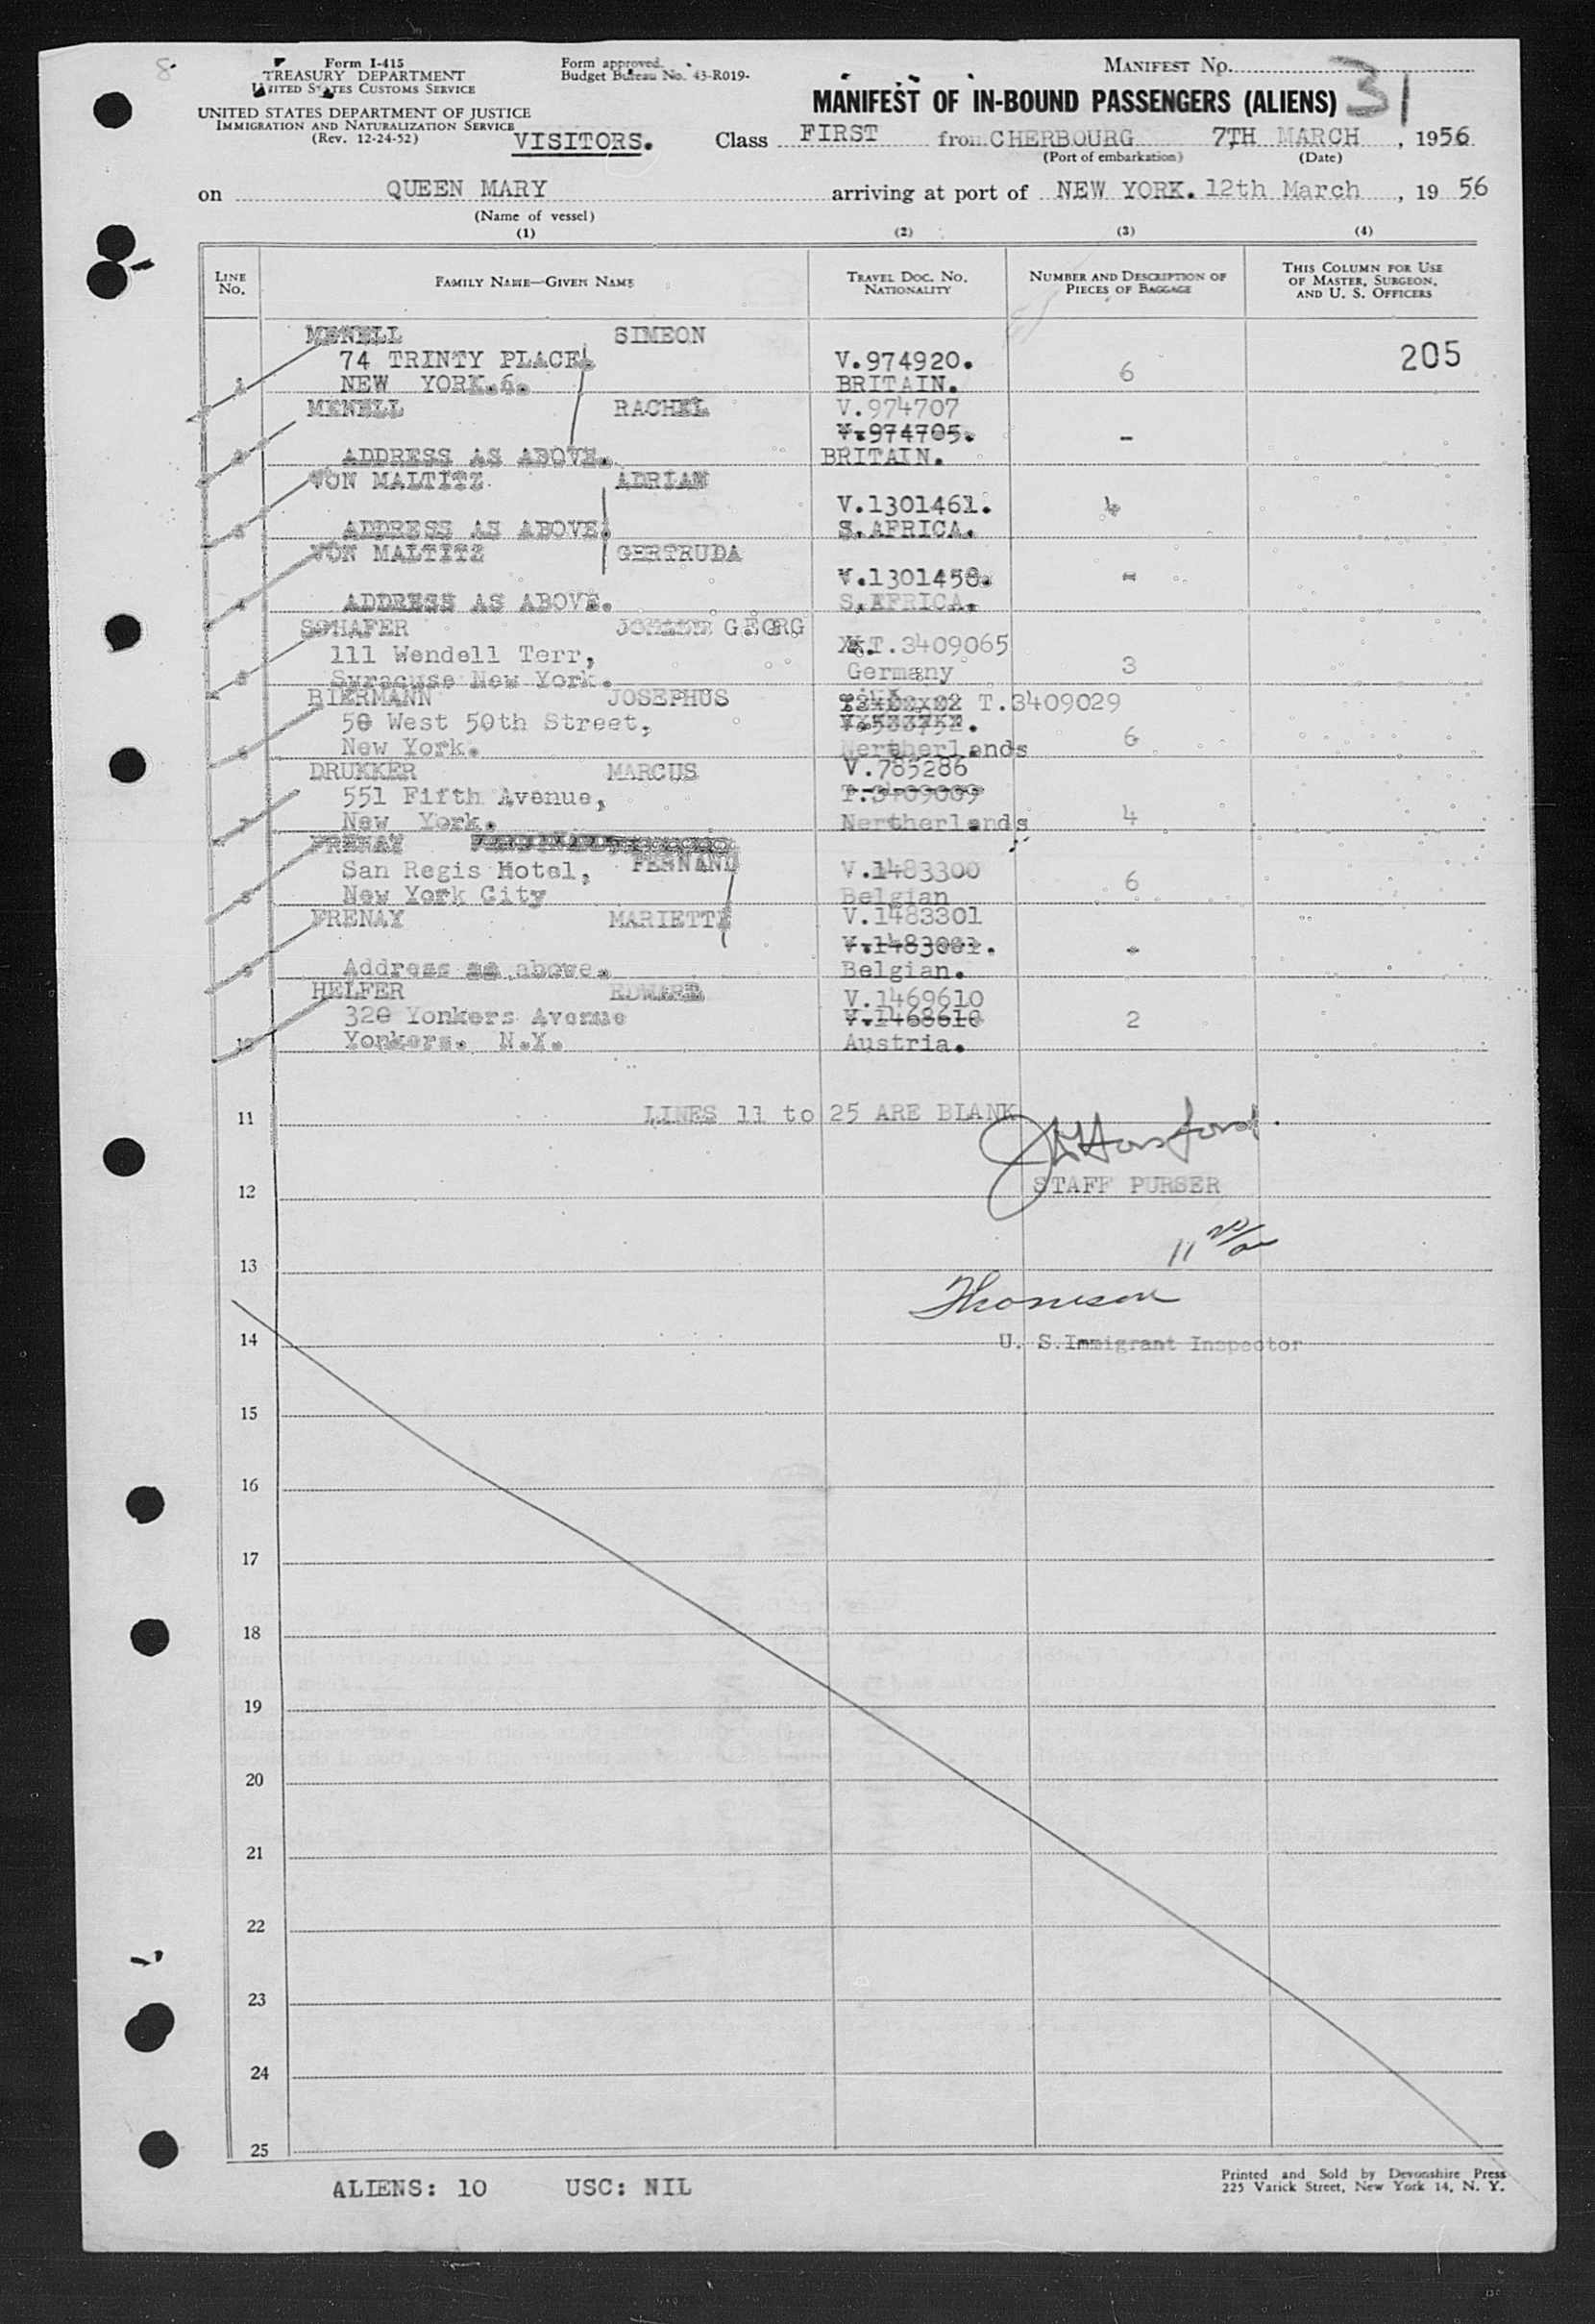 8
Form I-415
TREASURY DEPARTMENT
UNITED STATES CUSTOMS SERVICE
UNITED STATES DEPARTMENT OF JUSTICE
IMMIGRATION AND NATURALIZATION SERVICE
(Rev. 12-24-52)
Form approved.
Budget Bureau No. 43-R019-
MANIFEST No.
MANIFEST OF IN-BOUND PASSENGERS (ALIENS) 31
VISITORS. Class FIRST from CHERBOURG 7TH MARCH, 1956
(Port of embarkation) (Date)
on QUEEN MARY arriving at port of NEW YORK. 12th March, 19 56
(Name of vessel)
(1) (2) (3) (4)
LINE No.
FAMILY NAME—GIVEN NAME
TRAVEL DOC. NO. NATIONALITY
NUMBER AND DESCRIPTION OF PIECES OF BAGGAGE
THIS COLUMN FOR USE OF MASTER, SURGEON, AND U. S. OFFICERS
MENELL SIMEON
74 TRINTY PLACE V.974920. 6 205
1 NEW YORK.6. BRITAIN.
MENELL RACHEL V.974707
V.974705. -
2 ADDRESS AS ABOVE. BRITAIN.
VON MALTITZ ADRIAN
V.1301461. 4
3 ADDRESS AS ABOVE. S.AFRICA.
VON MALTITZ GERTRUDA
V.1301458. -
4 ADDRESS AS ABOVE. S.AFRICA.
SCHAFER GEORG
111 Wendell Terr, T.3409065 3
5 Syracuse New York. Germany
BIERMANN JOSEPHUS T.3409029
50 West 50th Street,
6 New York. Nertherlands 6
DRUKKER MARCUS V.785286
551 Fifth Avenue, T.3409009
7 New York. Nertherlands 4
FRENAY FERNAND
San Regis Hotel, V.1483300 6
8 New York City Belgian
FRENAY MARIETTE V.1483301
V.1483001. -
9 Address as above. Belgian.
HELFER EDWARD V.1469610
320 Yonkers Avenue V.1468610 2
10 Yonkers. N.Y. Austria.
11 LINES 11 to 25 ARE BLANK
12 STAFF PURSER
13
Thomson
14 U. S. Immigrant Inspector
15
16
17
18
19
20
21
22
23
24
25
ALIENS: 10 USC: NIL
Printed and Sold by Devonshire Press
225 Varick Street, New York 14, N. Y.